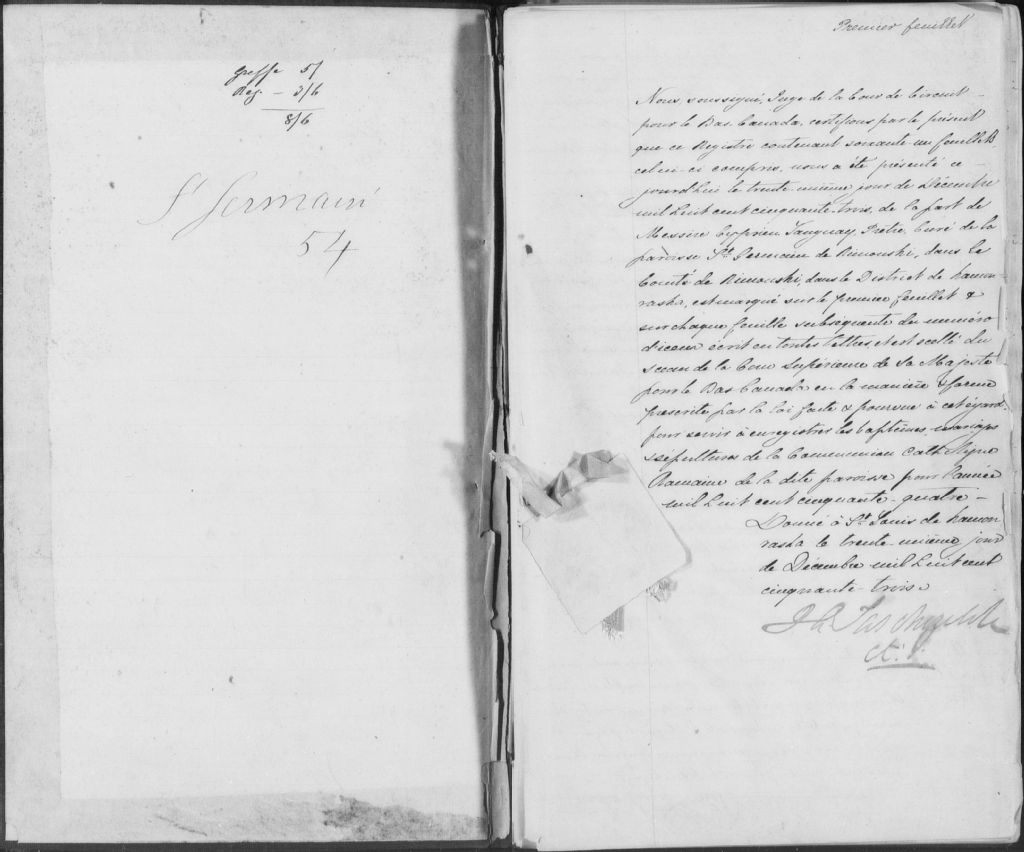 Greffe 5/
Reg. - 3/6
8/6
St Germain
54
Premier feuillet
Nous, soussigné, Juge de la Cour de Circuit
pour le Bas Canada, certifions par le présent
que ce Registre contenant soixante-un feuillets
celui-ci compris, nous a été présenté ce
jourd'hui le trente-unième jour de Décembre
mil huit cent cinquante-trois, de la part de
Messire Cyprien Tanguay, Prêtre, Curé de la
paroisse St Germain de Rimouski, dans le
Comté de Rimouski, dans le District de Kamou-
raska, est marqué sur le premier feuillet &
sur chaque feuille subséquente du numéro
d'iceux écrit en toutes lettres, et est scellé du
sceau de la Cour Supérieure de Sa Majesté
pour le Bas Canada en la manière & forme
prescrite par la loi faite & pourvue à cet égard,
pour servir à enregistrer les baptêmes, mariages
& sépultures de la Communion Catholique
Romaine de la dite paroisse pour l'année
mil huit cent cinquante-quatre -
Donné à St Louis de Kamou
raska le trente-unième jour
de Décembre mil huit cent
cinquante-trois.
J A Taschereau